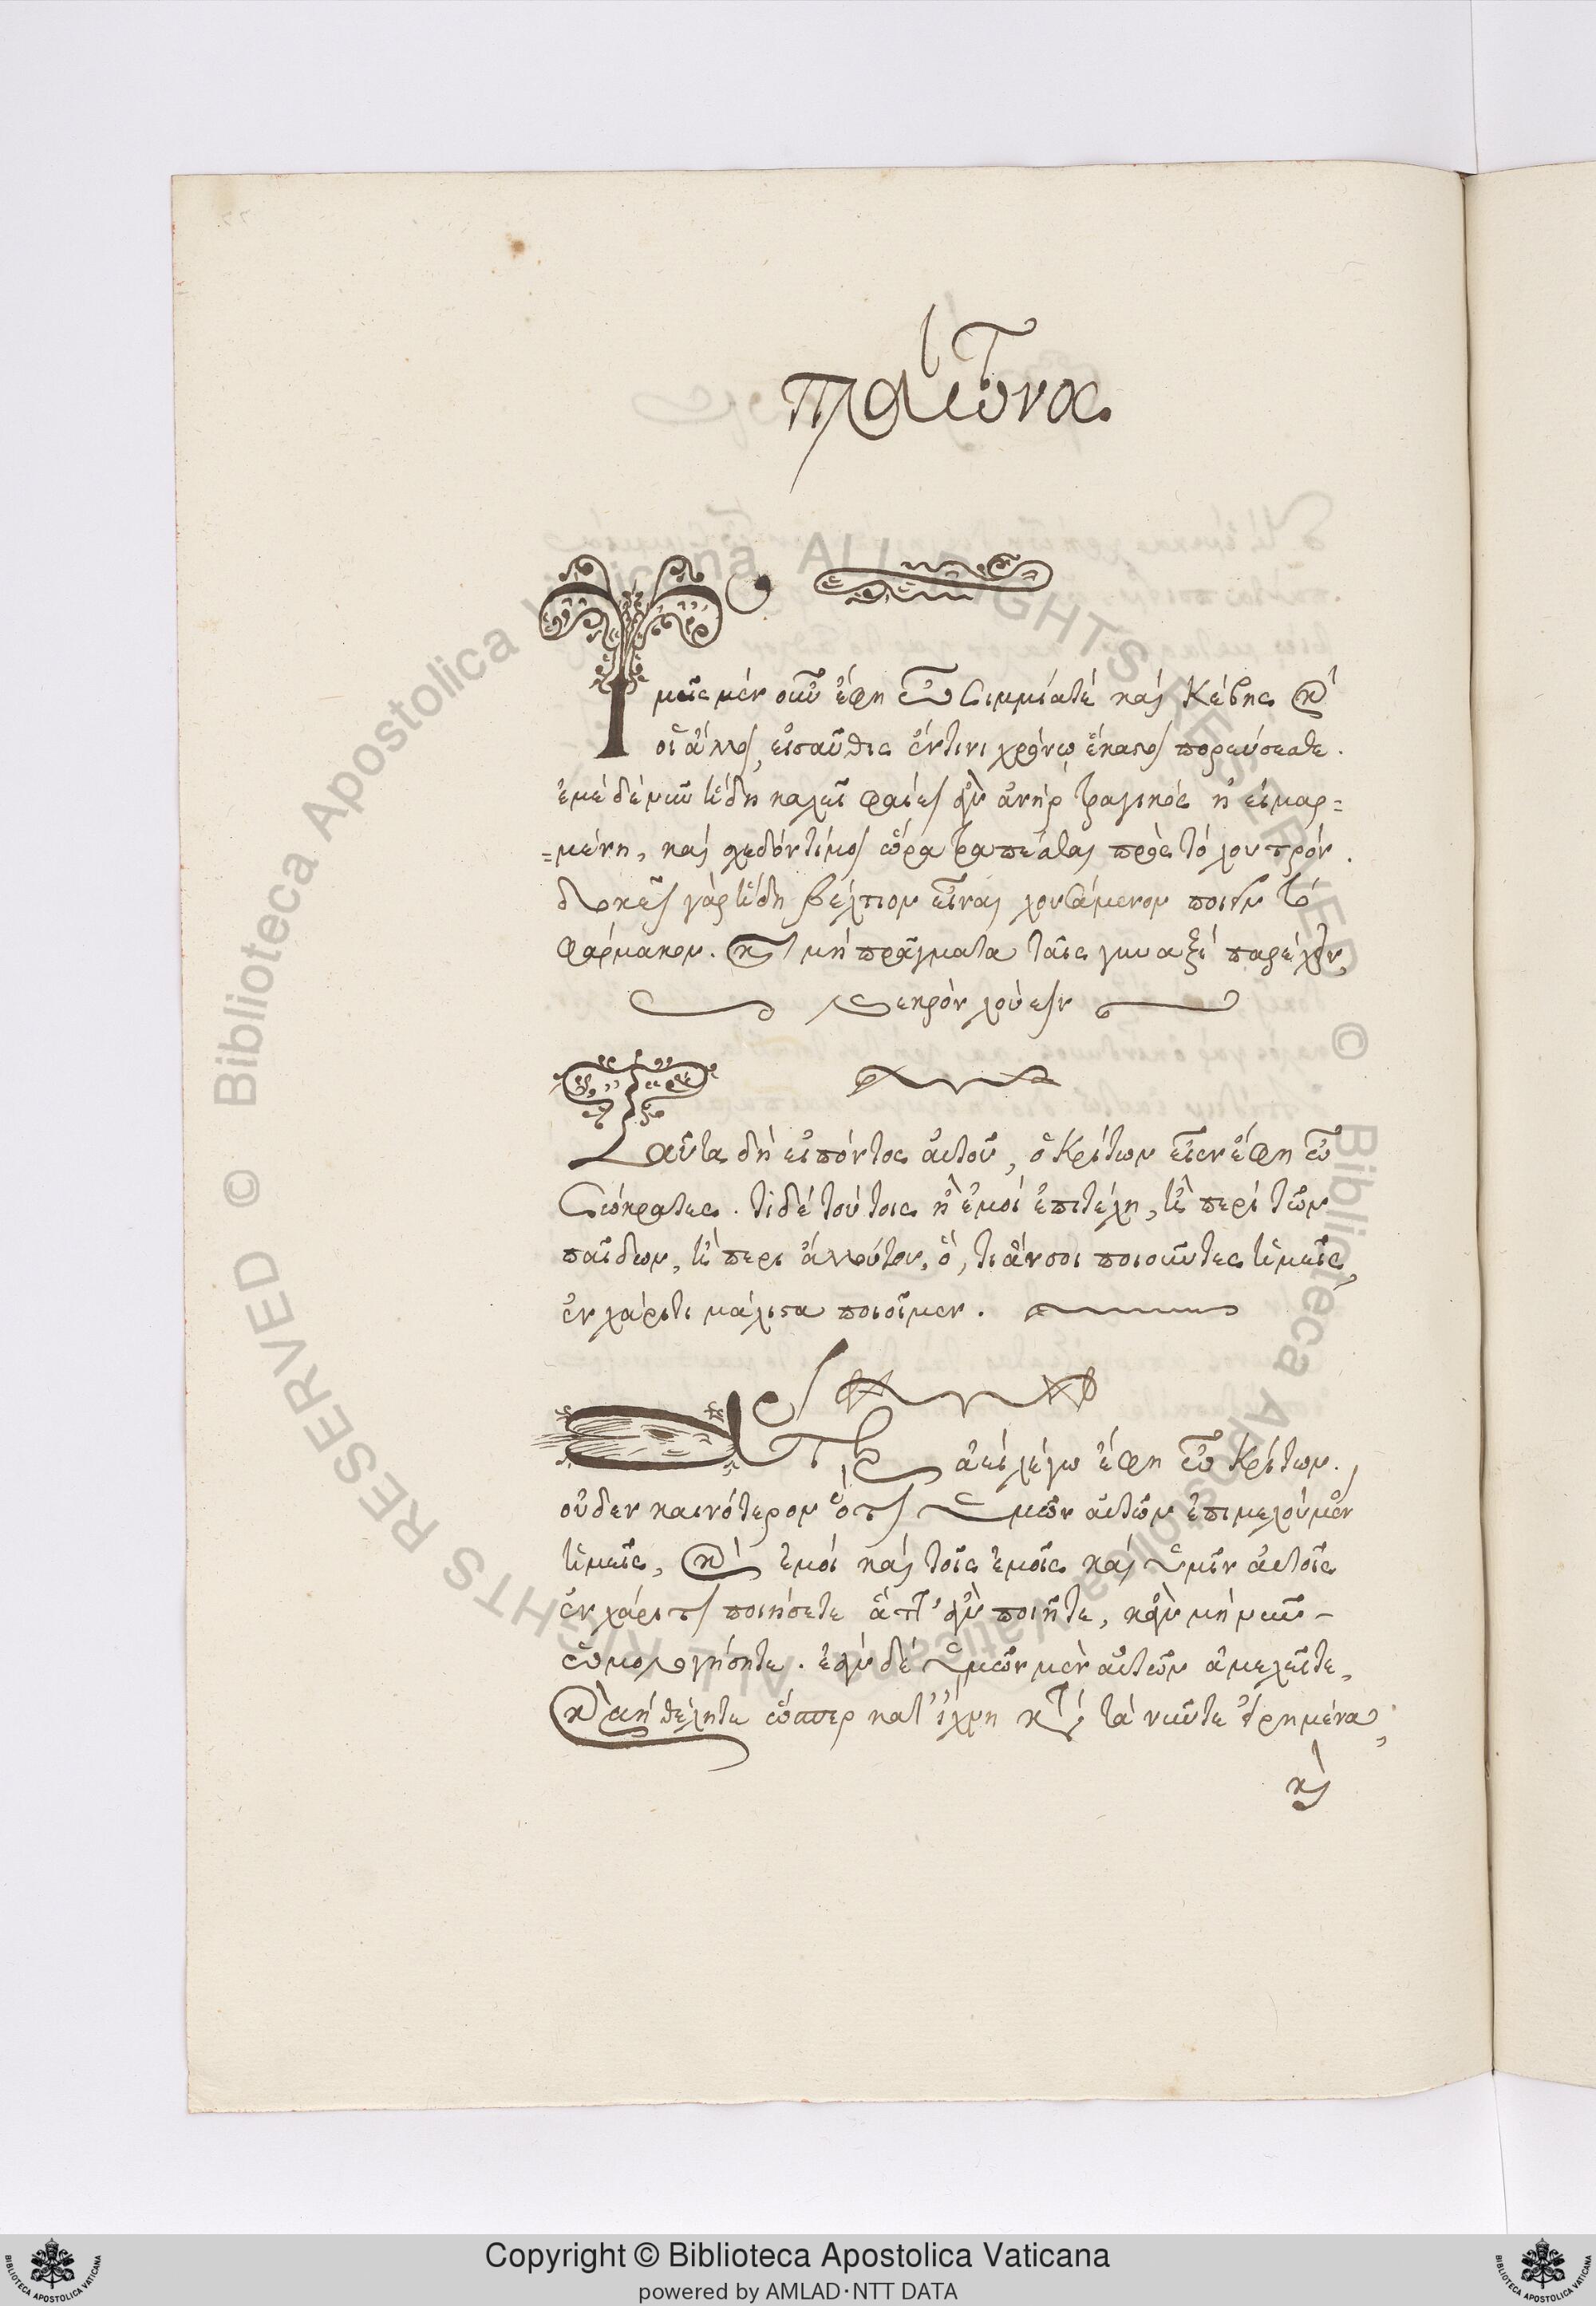 πλάτωνος
Ὑμεῖς μέν οὖν ἔφη ὦ Σιμμίατέ καί Κέβης καί
οἱ ἄλλοι, εἰσαῦθις ἔντινι χρόνῳ ἕκαστοι πορεύσεσθε.
ἐμέ δέ νῦν ἤδη καλεῖ φαίει ἄν ἀνήρ τραγικός ἡ εἱμαρ=
=μένη, καί σχεδόντίμοι ὥρα τραπέσθαι πρός τό λουτρόν.
δοκεῖ γάρ ἤδη βέλτιον εἶναι λουσάμενον πιεῖν τό
φάρμακον. καί μή πράγματα ταῖς γυναιξί παρέχειν,
νεκρόν λούειν
Ταῦτα δή εἰπόντος αὐτοῦ, ὁ Κρίτων εἶεν ἔφη ὦ
Σώκρατες. τίδέ τούτοις ἤ ἐμοί ἐπιτέλη, ἤ περί τῶν
παίδων, ἤ περι ἄλλούτου, ὅ, τιἄνσοι ποιοῦντες ἡμεῖς,
ἐν χάριτι μάλιστα ποιοῖμεν.
ἀεί λέγω ἔφη ὦ Κρίτων.
οὐδεν καινότερον ὅτι ὑμῶν αὐτῶν ἐπιμελούμενοι
ὑμεῖς, καί ἐμοί καί τοῖς ἐμοῖς καί ὑμῖν αὐτοῖς
ἐν χάριτι ποιήσετε ἅττ' ἄν ποιῆτε, κἄν μή νῦν-
ὁμολογήσητε. ἐάν δέ ὑμῶν μέν αὐτῶν ἀμελεῖτε,
καί μή θέλητε ὥσπερ κατ' ἴχνη κατά τά νῦντε εἰρημένα,
καί